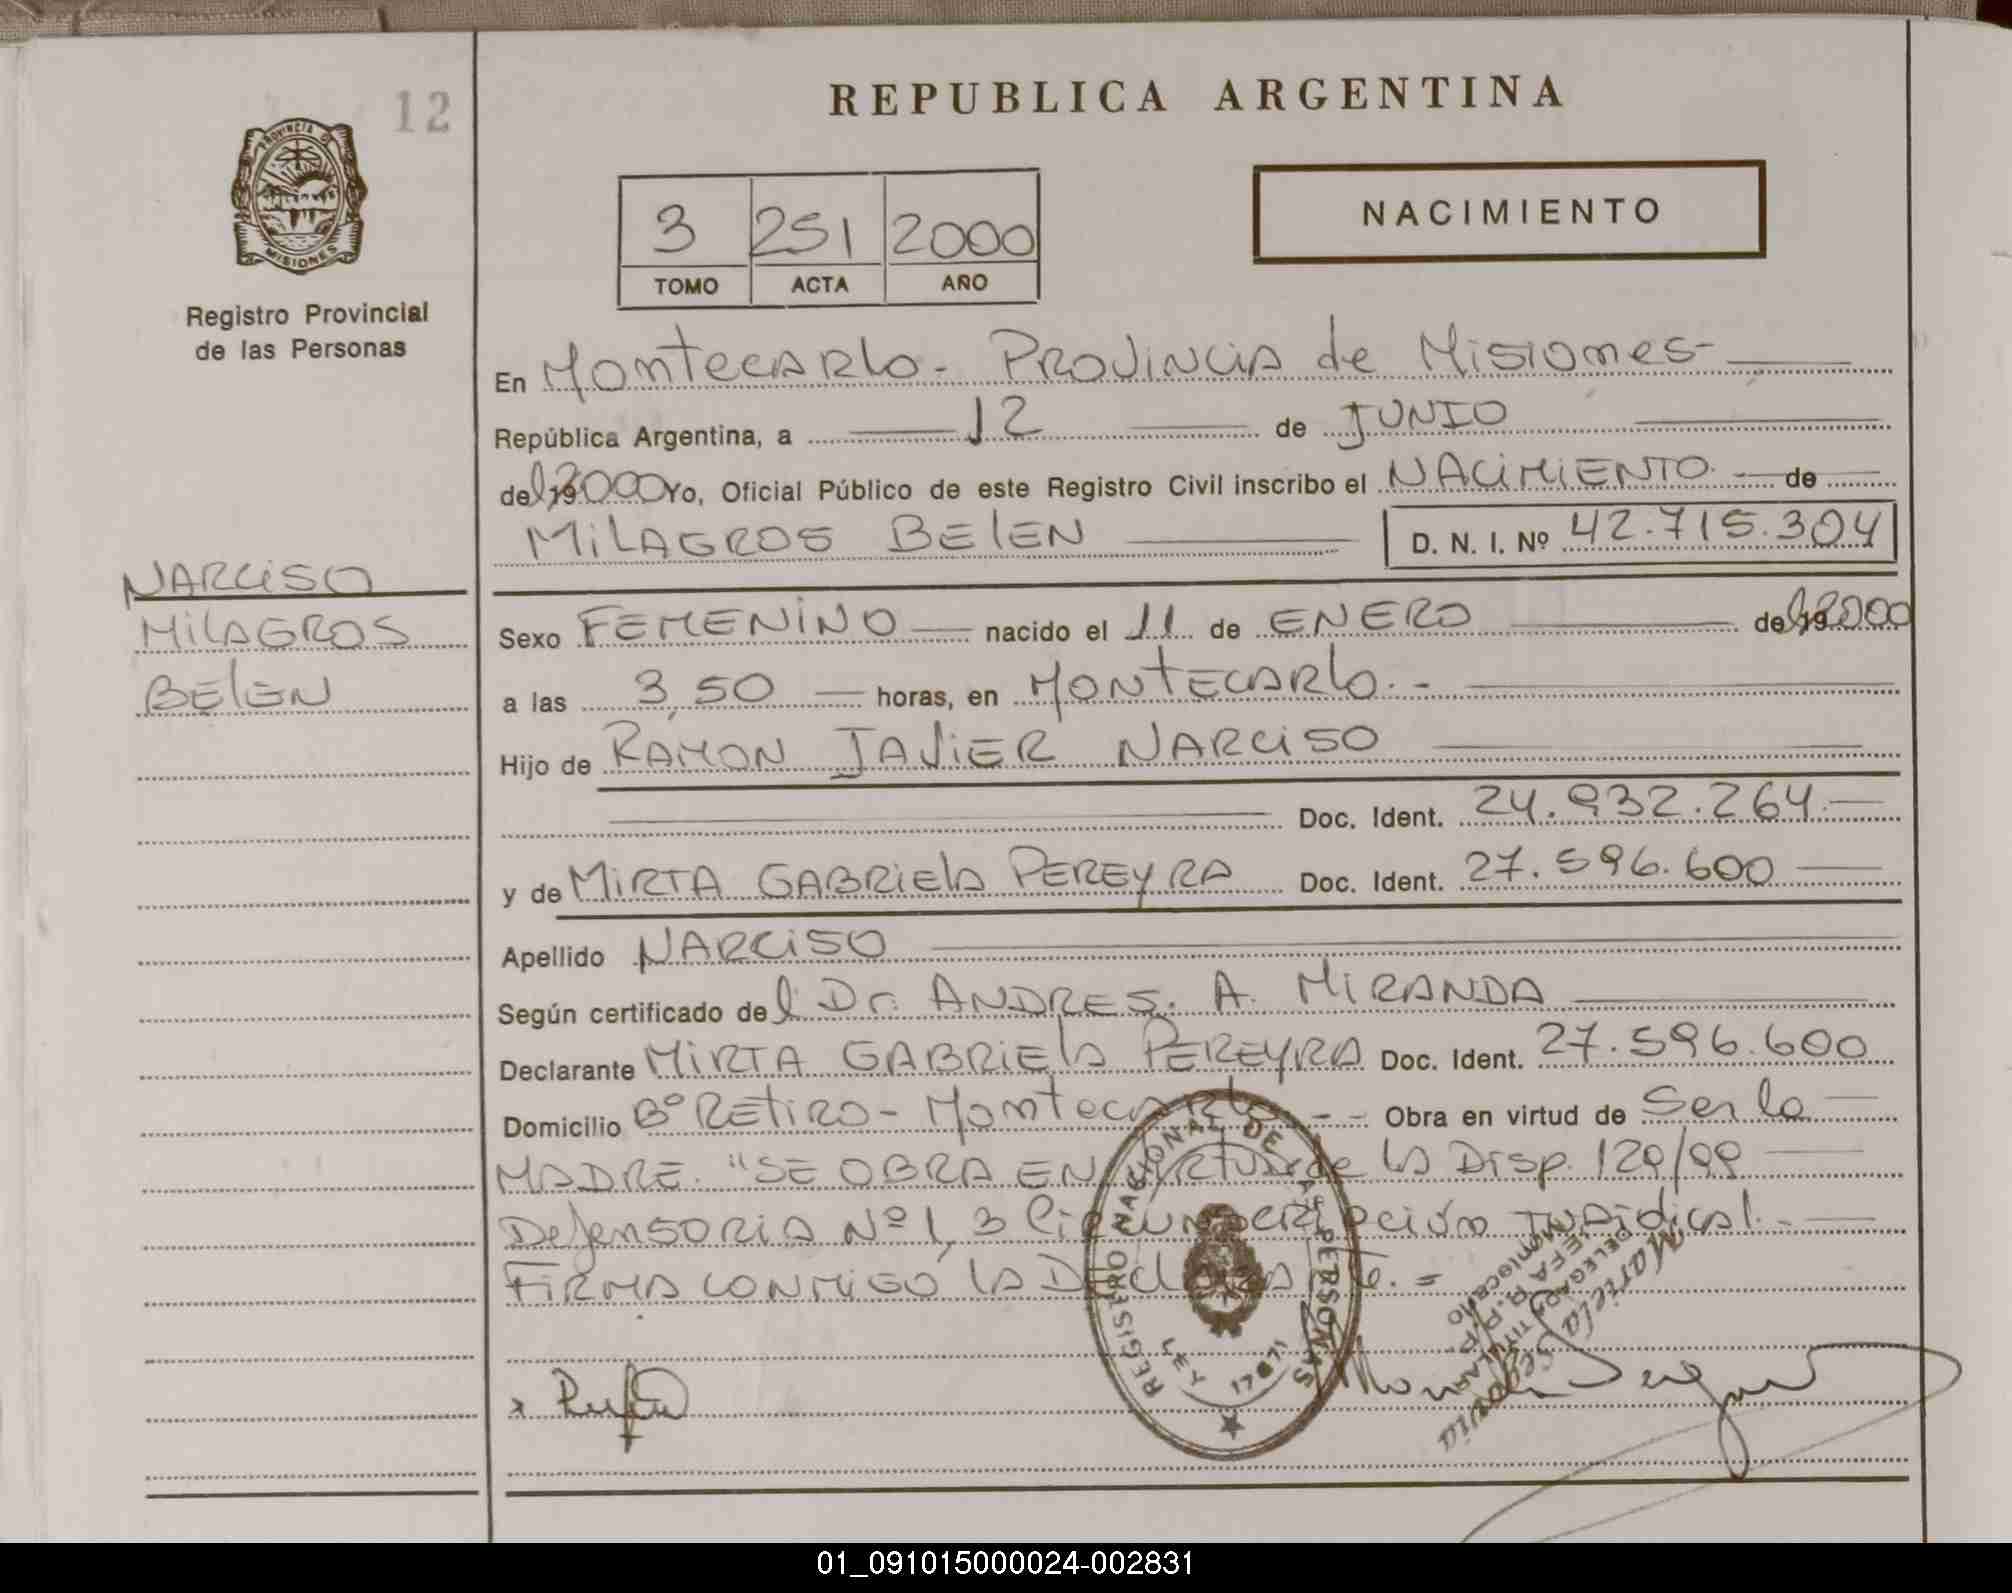 12
REPUBLICA ARGENTINA
PROVINCIA DE
MISIONES
Registro Provincial
de las Personas
3 251 2000
TOMO ACTA AÑO
NACIMIENTO
En MONTECARLO - PROVINCIA de MISIONES-
República Argentina, a 12 de JUNIO
del 2000 Yo, Oficial Público de este Registro Civil inscribo el NACIMIENTO de
MILAGROS BELEN D. N. I. Nº 42.715.304
NARCISO
MILAGROS
BELEN
Sexo FEMENINO nacido el 11 de ENERO del 2000
a las 3,50 horas, en MONTECARLO.-
Hijo de RAMON JAVIER NARCISO
Doc. Ident. 24.932.264.
y de MIRTA GABRIELA PEREYRA Doc. Ident. 27.596.600
Apellido NARCISO
Según certificado del Dr. ANDRES. A. MIRANDA
Declarante MIRTA GABRIELA PEREYRA Doc. Ident. 27.596.600
Domicilio Bº RETIRO - MONTECARLO - - Obra en virtud de Ser la
MADRE. "SE OBRA EN VIRTUD de LA Disp. 129/99
Defensoria Nº 1, 3 Circunscripción JURIdICAl.-
FIRMA CONMIGO LA DeclARANte. =
REGISTRO NACIONAL DE LAS PERSONAS
LEY 17671
Mariela Segovia
DELEGADA TITULAR
JEFA R.P.P.
Montecarlo
01_091015000024-002831